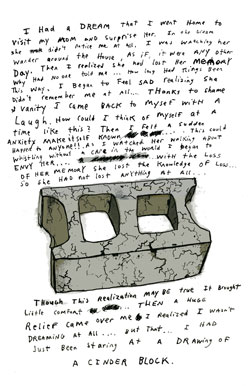 I HAD A DREAM THAT I WENT HOME TO
VISIT MY MOM AND SURPRISE HER. IN THE DREAM
SHE DIDN'T NOTICE ME AT ALL. I WAS WATCHING HER
WANDER AROUND THE HOUSE AS IF IT WERE ANY OTHER
DAY. THEN I REALIZED SHE HAD LOST HER MEMORY
WHY HAD NO ONE TOLD ME... HOW LONG HAD THINGS BEEN
THIS WAY. I BEGAN TO FEEL SAD REALIZING SHE
DIDN'T REMEMBER ME AT ALL... THANKS TO SHAME
& VANITY I CAME BACK TO MYSELF WITH A
LAUGH. HOW COULD I THINK OF MYSELF AT A
TIME LIKE THIS? THEN I FELT A SUDDEN
ANXIETY MAKE ITSELF KNOWN.... THIS COULD
HAPPEN TO ANYONE!!. AS I WATCHED HER WALKING ABOUT
WHISTLING WITHOUT A CARE IN THE WORLD I BEGAN TO
ENVY HER... WITH THE LOSS
OF HER MEMORY SHE LOST THE KNOWLEDGE OF LOSS...
SO SHE HAD NOT LOST ANYTHING AT ALL...
THOUGH THIS REALIZATION MAY BE TRUE IT BROUGHT
LITTLE COMFORT... THEN A HUGE
RELIEF CAME OVER ME I REALIZED I WASN'T
DREAMING AT ALL... BUT THAT... I HAD
JUST BEEN STARING AT A DRAWING OF
A CINDER BLOCK.